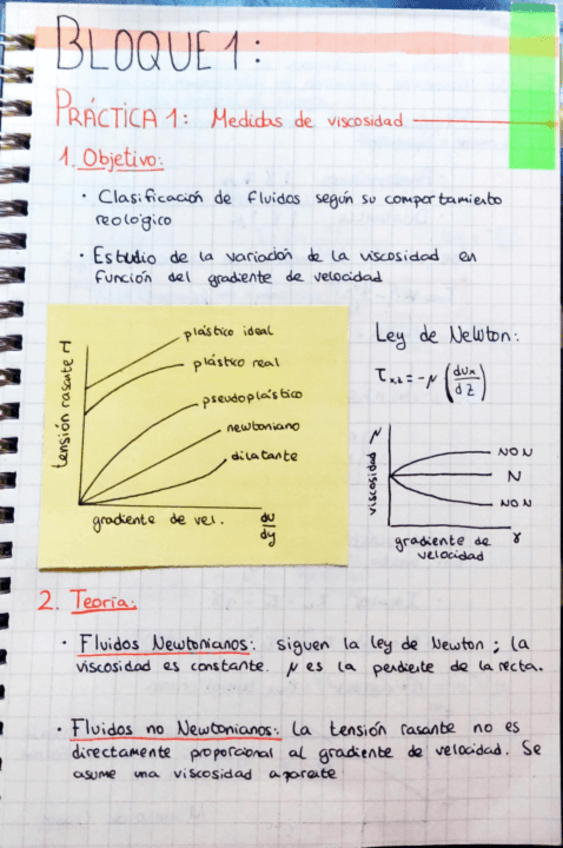 BLOQUE 1:
PRÁCTICA 1: Medidas de viscosidad
1. Objetivo:
· Clasificación de fluidos según su comportamiento
reológico
· Estudio de la variación de la viscosidad en
función del gradiente de velocidad
plástico ideal
plástico real
pseudoplástico
newtoniano
dilatante
tensión rasante
gradiente de vel. du/dy
Ley de Newton:
τx,z = -μ (dux/dz)
viscosidad μ
NO N
N
NO N
gradiente de γ
velocidad
2. Teoría:
· Fluidos Newtonianos: siguen la ley de Newton; la
viscosidad es constante. μ es la pendiente de la recta.
· Fluidos no Newtonianos: la tensión rasante no es
directamente proporcional al gradiente de velocidad. Se
asume una viscosidad aparente